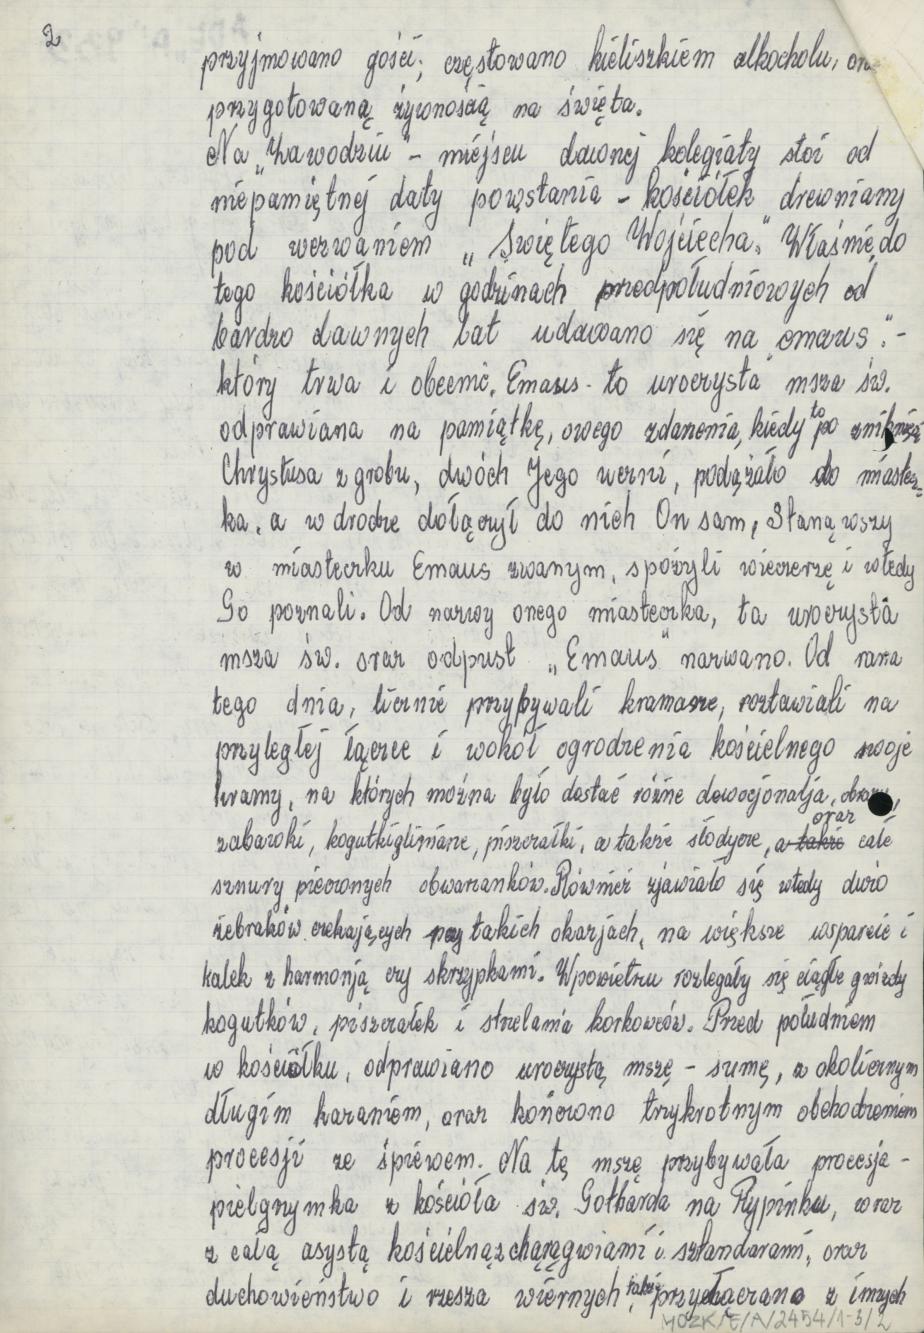 2
przyjmowano gości, częstowano kieliszkiem alkocholu,
przygotowaną żywnością na święta.
Na „Zawodziu" – miejscu dawnej kolegiaty stoi od
niepamiętnej daty powstania – kościółek drewniany
pod wezwaniem „Świętego Wojciecha." Właśnie do
tego kościółka w godzinach przedpołudniowych od
bardzo dawnych lat udawano się na „emaus". –
który trwa i obecnie. Emaus - to uroczysta msza św.
odprawiana na pamiątkę, owego zdarzenia, kiedy to po
Chrystusa z grobu, dwóch Jego wierni, podążało do miastecz-
ka, a w drodze dołączył do nich On sam, Stanąwszy
w miasteczku Emaus zwanym, spożyli wieczerzę i wtedy
Go poznali. Od nazwy onego miasteczka, ta uroczysta
msza św. oraz odpust „Emaus" nazwano. Od rana
tego dnia, licznie przybywali kramarze, rozstawiali na
przyległej łączce i wokół ogrodzenia kościelnego swoje
kramy, na których można było dostać różne dewocjonalja,
zabawki, kogutki gliniane, piszczałki, a także słodycze, a ~~także~~ oraz całe
sznury pieczonych obwarzanków. Również zjawiało się wtedy dużo
żebraków czekających przy takich okazjach, na większe wsparcie i
kalek z harmonją czy skrzypkami. W powietrzu rozlegały się ciągłe gwizdy
kogutków, piszczałek i strzelania korkowców. Przed południem
w kościółku, odprawiano uroczystą mszę – sumę, z okolicznym
długim kazaniem, oraz kończono trzykrotnym obchodzeniem
procesji ze śpiewem. Na tę mszę przybywała procesja –
pielgrzymka z kościoła św. Gotharda na Rypinku, wraz
z całą asystą kościelną z chorągwiami i sztandarami, oraz
duchowieństwo i rzesza wiernych, także z innych
MOZK/E/A/2454/1-3/2